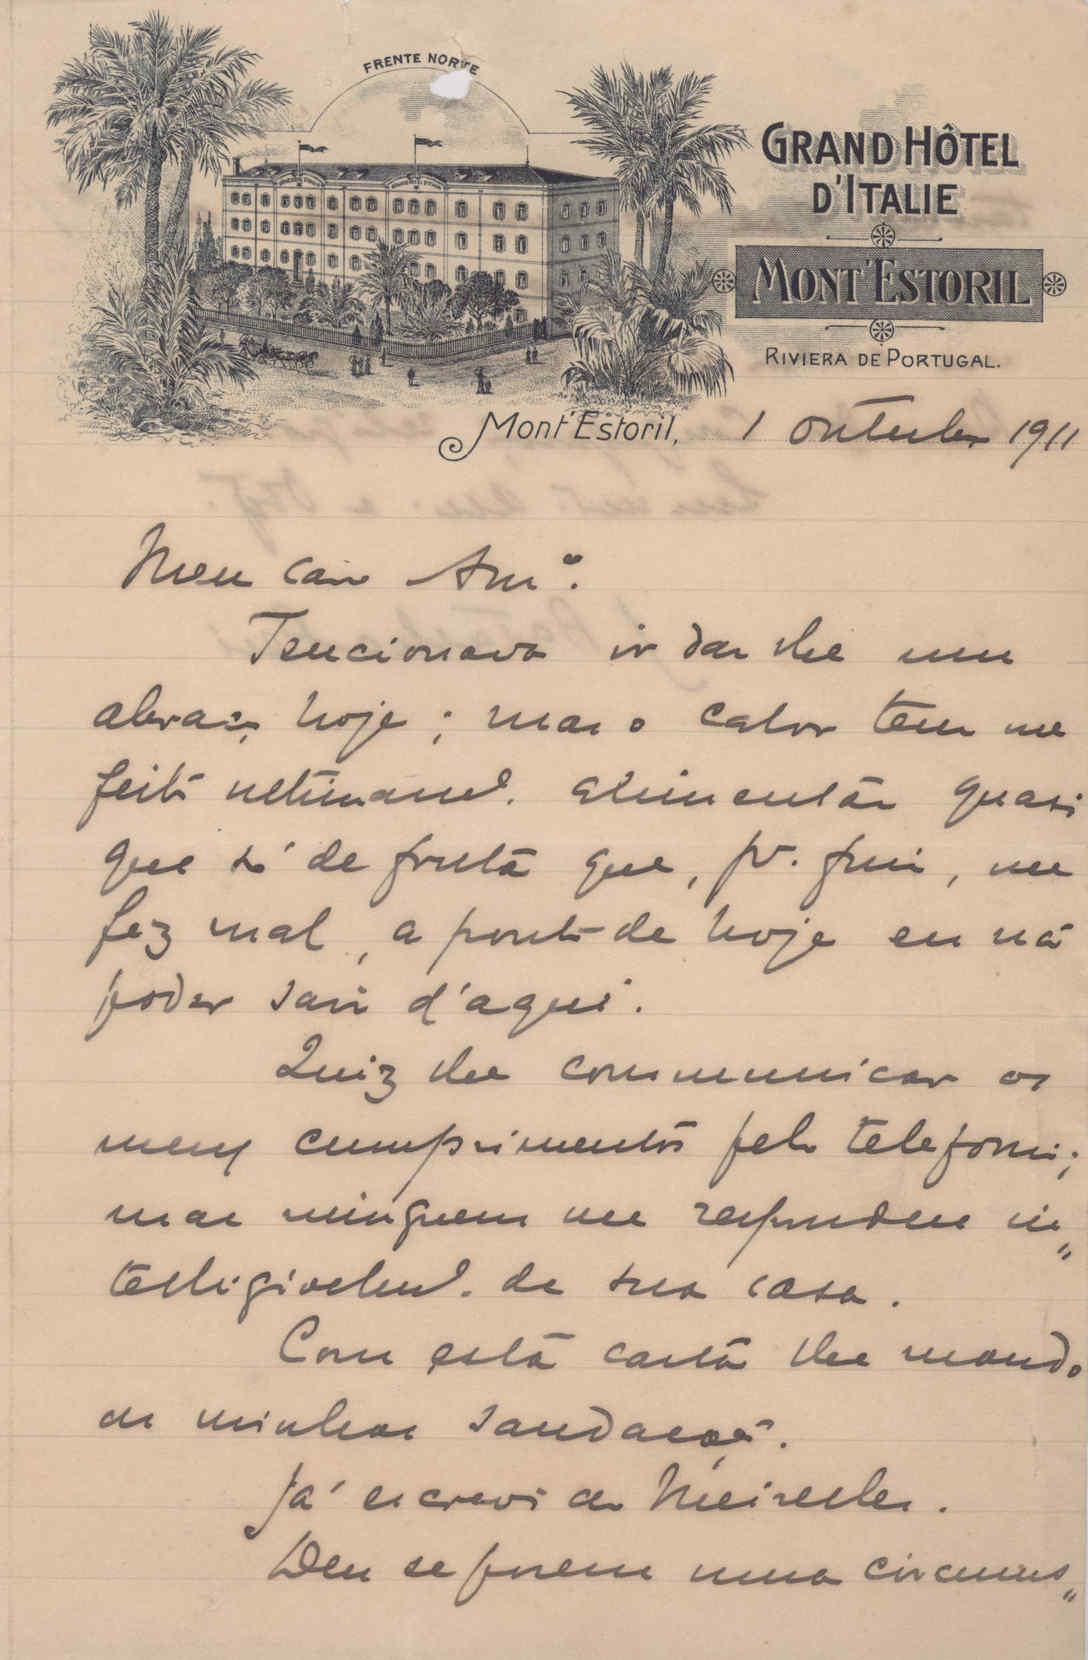 FRENTE NORTE
GRAND HÔTEL
D'ITALIE
MONT'ESTORIL
RIVIERA DE PORTUGAL.
Mont'Estoril, 1 outubro 1911
Meu caro Amº.
Tencionava ir dar lhe um
abraço hoje; mas o calor tem me
feito ultimamt. alimentar quasi
que só de fruta que, por fim, me
fez mal, a ponto de hoje eu não
poder sair d'aqui.
Quiz lhe communicar os
meus cumprimentos pelo telefone;
mas ninguem me respondeu in„
telligivelmt. de sua casa.
Com esta carta lhe mando
as minhas saudações.
Já escrevi ao Meirelles.
Deu se porem uma circums„